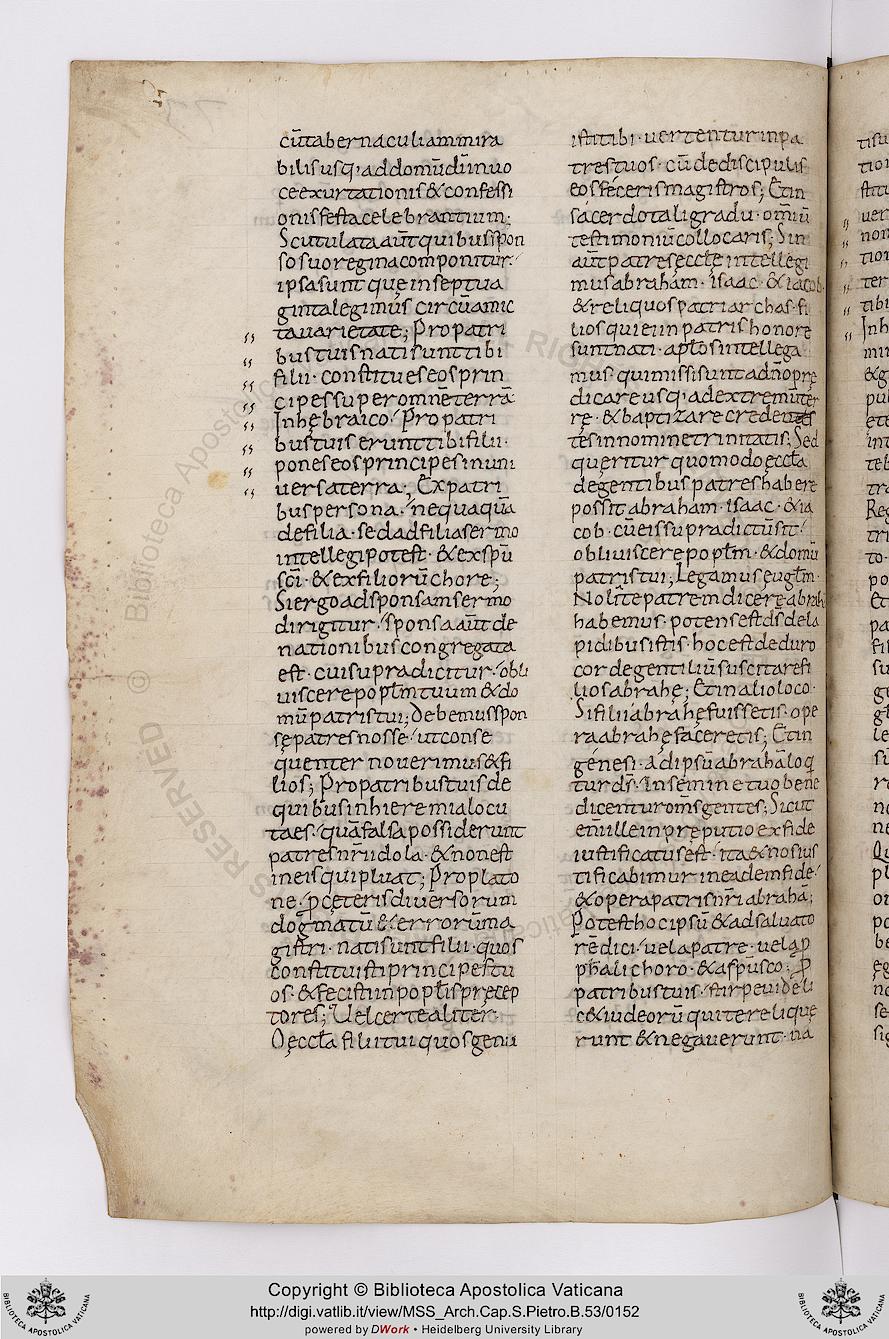 cū tabernaculi ammira
bilis usq; ad domū dī in uo
ce exurtationis & confessi
onis festa celebrantium;
Scutulata aūt quibus spon
so suo regina componitur·
ipsa sunt que in septua
ginta legimus circūamic
ta uarietate; Pro patri
bus tuis nati sunt tibi
filii· constitues eos prin
cipes super omnē terrā
In hebraico· Pro patri
bus tuis erunt tibi filii·
pones eos principes in uni
uersa terra; Ex patri
bus persona· nequaquā
de filia· sed ad filia sermo
intellegi potest· & ex spū
scī· & ex filiorū chore;
Si ergo ad sponsam sermo
dirigitur· sponsa aūt de
nationibus congregata
est· cui supra dicitur· obli
uiscere poplm tuum & do
mū patris tui; Debemus spon
sę patres nosse· ut conse
quenter nouerimus & fi
lios; Pro patribus tuis de
quibus in hieremia locu
ta es· quā falsa possiderunt
patres nr̄i idola· & non est
in eis qui pluat; Pro plato
ne· p ceteris diuersorum
dogmatū & errorū ma
gistri· nati sunt filii· quos
constituisti principes tu
os· & fecisti in poplīs precep
tores; Uel certe aliter·
O ęccla filii tui quos genu
isti tibi· uertentur in pa
tres tuos· cū de discipulis
eos féceris magistros; Et in
sacerdotali gradu· omiū
testimoniū collocaris; Sin
aūt patres ęcclę intellegi
mus abrahám· isaac· & iacob·
& reliquos patriarchas· fi
lios qui ei in patris honore
sunt nati· aplos intellega
mus· qui missi sunt a dno prę
dicare usq; ad extremū ter
rę· & baptizare credentes
tes in nomine trinitatis; Sed
queritur quomodo ęccla
de gentibus patres habere
possit abraham· isaac· & ia
cob· cū ei supra dictū sit·
obliuiscere poplm· & domū
patris tui; Legamus euglm·
Nolite patrem dicere abrah
habemus· potens est ds de la
pidibus istis· hoc est de duro
cor de gentiliū suscitare fi
lios abrahę; Et in alio loco·
Si filii abrahę fuissetis· ope
ra abrahę faceretis; Et in
génesi· Ad ipsū abrahā loq
tur ds̄· In semine tuo bene
dicentur oms gentes; Sicut
enī ille in preputio ex fide
iustificatus est· ita & nos ius
tificabimur in eadem fide·
& opera patris nr̄i abrahā;
Potest hoc ipsū & ad saluato
rē dici· uel a patre· uel a p
phali choro· & a spū sco· P
patribus tuis· stirpe uideli
c& iudeorū qui te relique
runt & negauerunt· na
Copyright © Biblioteca Apostolica Vaticana
http://digi.vatlib.it/view/MSS_Arch.Cap.S.Pietro.B.53/0152
powered by DWork • Heidelberg University Library